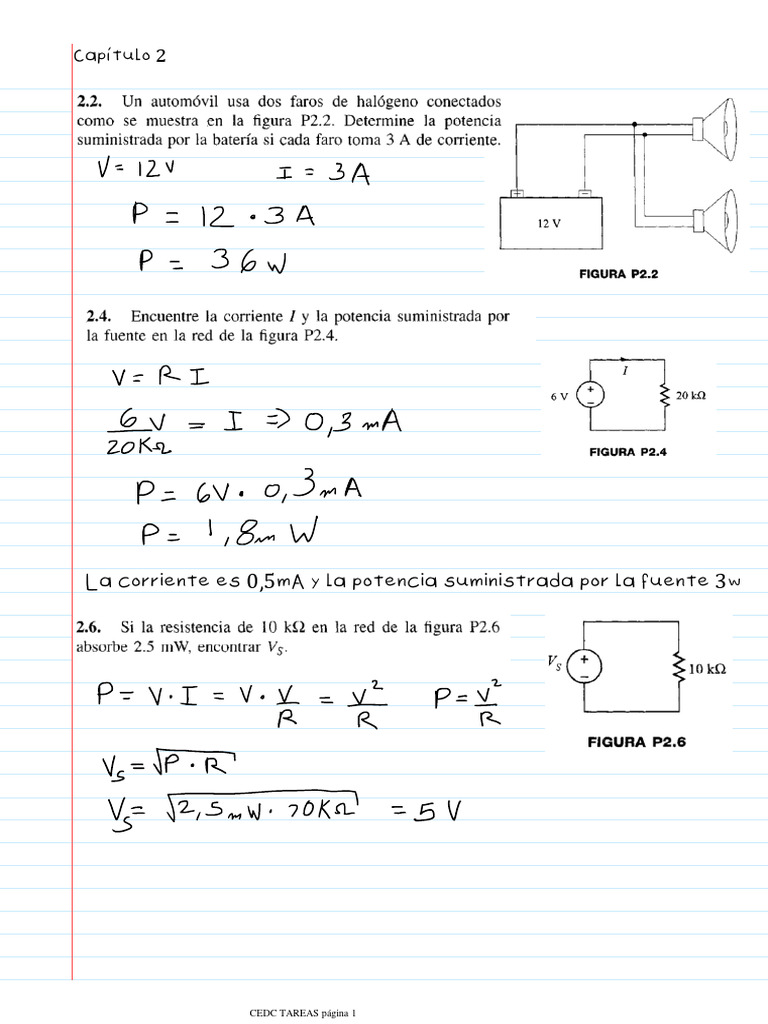 Capítulo 2
2.2. Un automóvil usa dos faros de halógeno conectados
como se muestra en la figura P2.2. Determine la potencia
suministrada por la batería si cada faro toma 3 A de corriente.
V = 12 V I = 3 A
P = 12 · 3 A
P = 36 W
12 V
FIGURA P2.2
2.4. Encuentre la corriente I y la potencia suministrada por
la fuente en la red de la figura P2.4.
V = R I
6 V / 20 KΩ = I => 0,3 mA
P = 6V · 0,3 mA
P = 1,8 m W
6 V
+
−
I
20 kΩ
FIGURA P2.4
La corriente es 0,5mA y la potencia suministrada por la fuente 3w
2.6. Si la resistencia de 10 kΩ en la red de la figura P2.6
absorbe 2.5 mW, encontrar VS.
P = V · I = V · V/R = V²/R P = V²/R
VS = √P · R
VS = √2,5 mW · 70KΩ = 5 V
VS
+
−
10 kΩ
FIGURA P2.6
CEDC TAREAS página 1